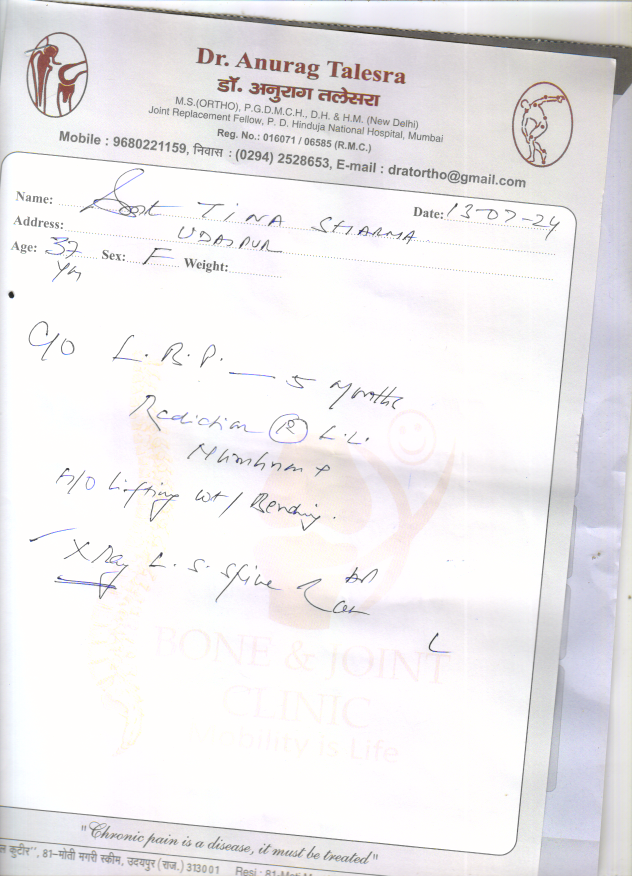 Dr. Anurag Talesra
डॉ. अनुराग तलेसरा
M.S.(ORTHO), P.G.D.M.C.H., D.H. & H.M. (New Delhi)
Joint Replacement Fellow, P. D. Hinduja National Hospital, Mumbai
Reg. No.: 016071 / 06585 (R.M.C.)
Mobile : 9680221159, निवास : (0294) 2528653, E-mail : dratortho@gmail.com
Name: TINA SHARMA Date: 13-07-24
Address: UDAIPUR
Age: 37 Yrs Sex: F Weight:
C/O L.B.P. — 5 Months
Radiction (R) L.L.
Numbness +
H/O Lifting wt / Bending.
X Ray L.S. Spine AP Lat
BONE & JOINT
CLINIC
bility is Life
"Chronic pain is a disease, it must be treated"
कुटीर'', 81-मोती मगरी स्कीम, उदयपुर (राज.) 313001 Resi : 81-